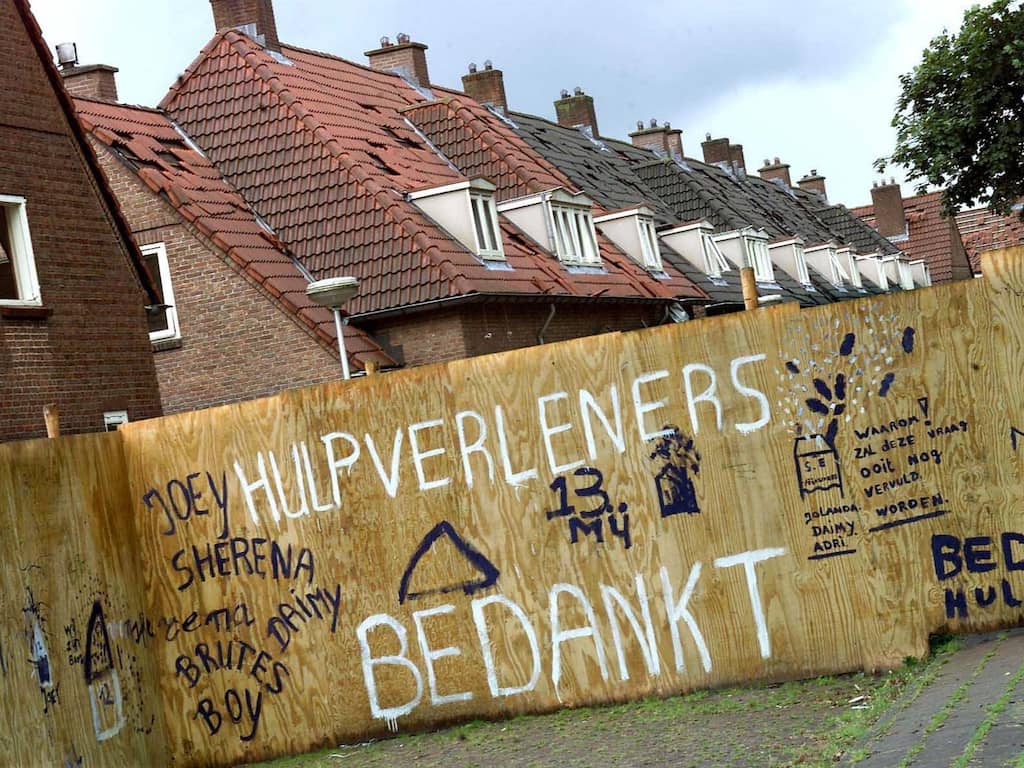 HULPVERLENERS
BEDANKT
JOEY
SHERENA
DAIMY
BRUTES
BOY
13..
MY
S.E
WAAROM!
ZAL DEZE VRAAG
OOIT NOG
VERVULD.
WORDEN.
JOLANDA.
DAIMY.
ADRI.
BED
HUL